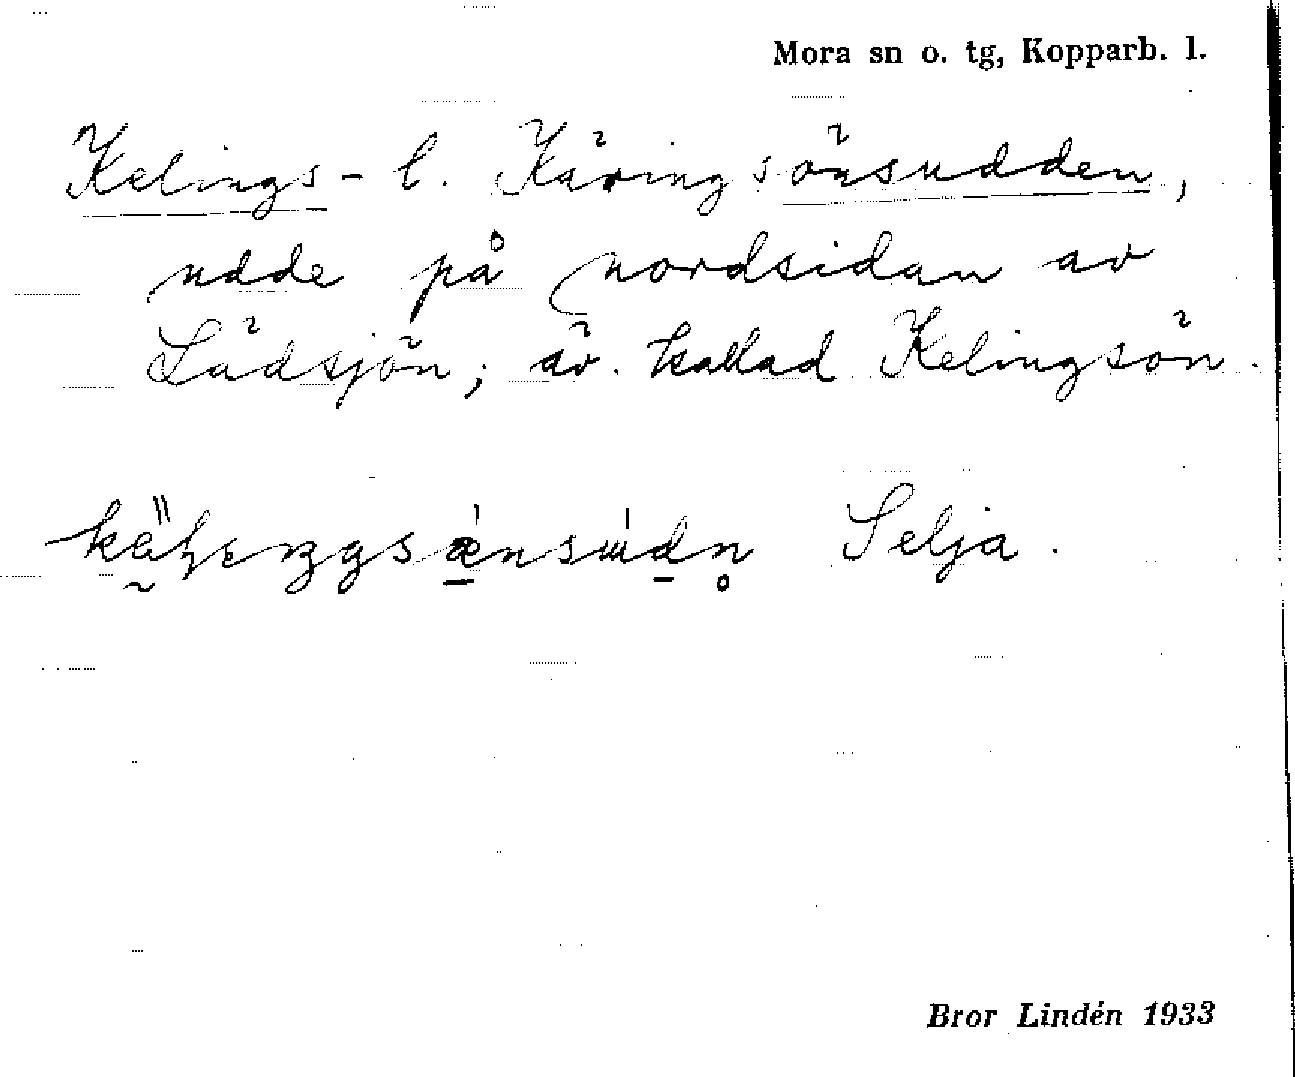 Mora sn o. tg, Kopparb. l.
Kelings- l. Käringsönsudden,
udde på nordsidan av
Lädsjön; äv. kallad Kelingsön.
Selja.
Bror Lindén 1933